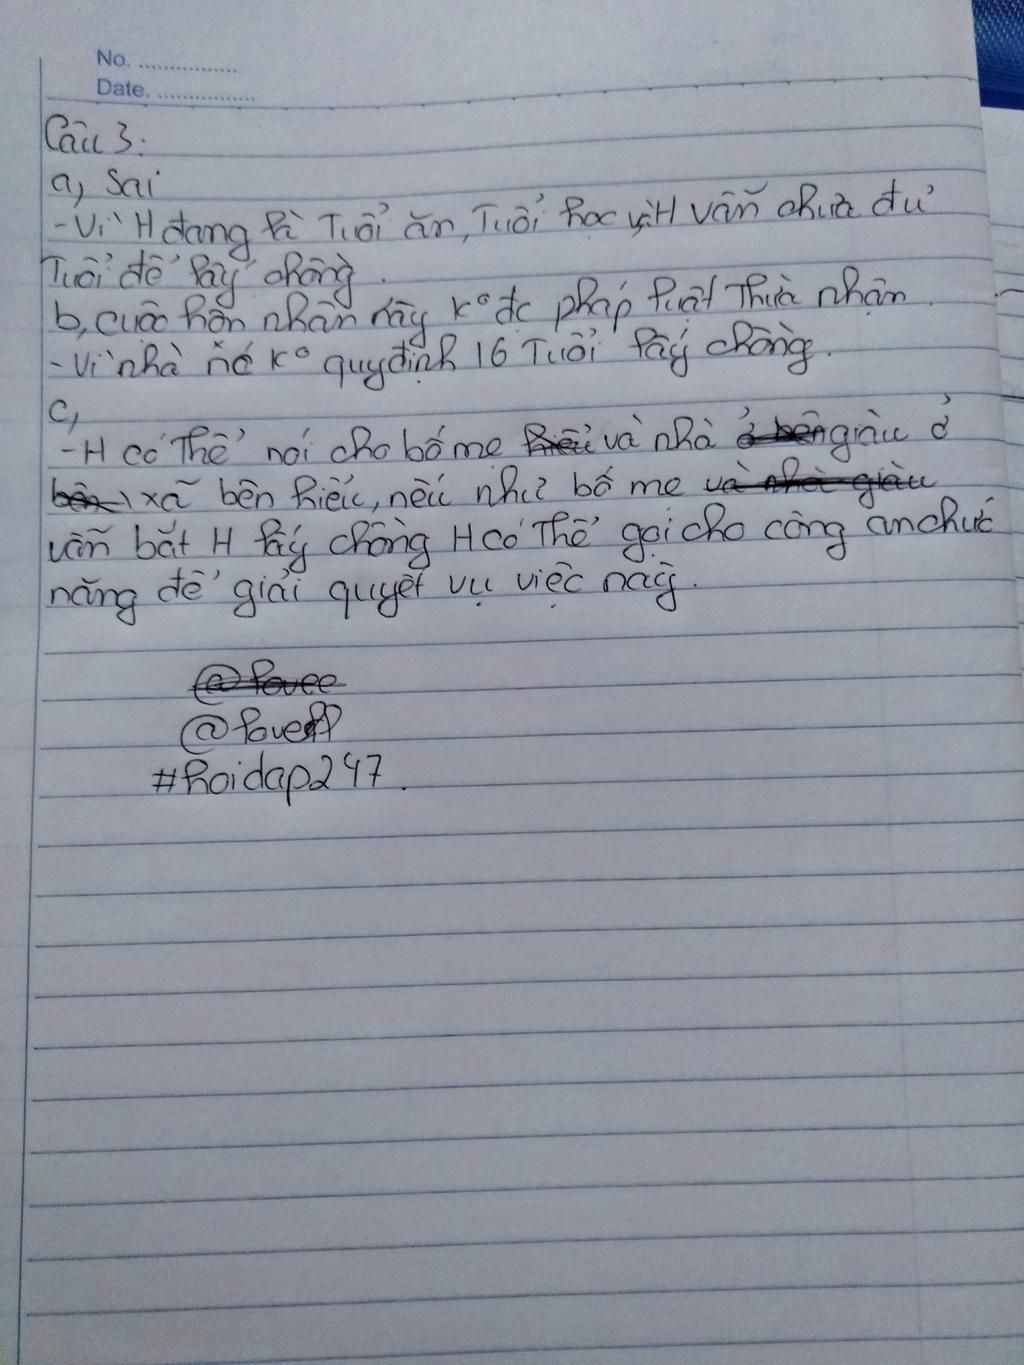 No. ................
Date. ................
Câu 3:
a, Sai
- Vì H đang là Tuổi ăn, Tuổi học và H vẫn chưa đủ
Tuổi để lấy chồng.
b, cuộc hôn nhân này kº đc pháp luật Thừa nhận.
- Vì nhà nc kº quy định 16 Tuổi lấy chồng.
c,
- H có Thể nói cho bố mẹ hiểu và nhà ở bên giàu ở
bên xã bên hiểu, nếu như bố mẹ và nhà giàu
vẫn bắt H lấy chồng H có Thể gọi cho công an chức
năng để giải quyết vụ việc này.
@lovee
#hoidap247.